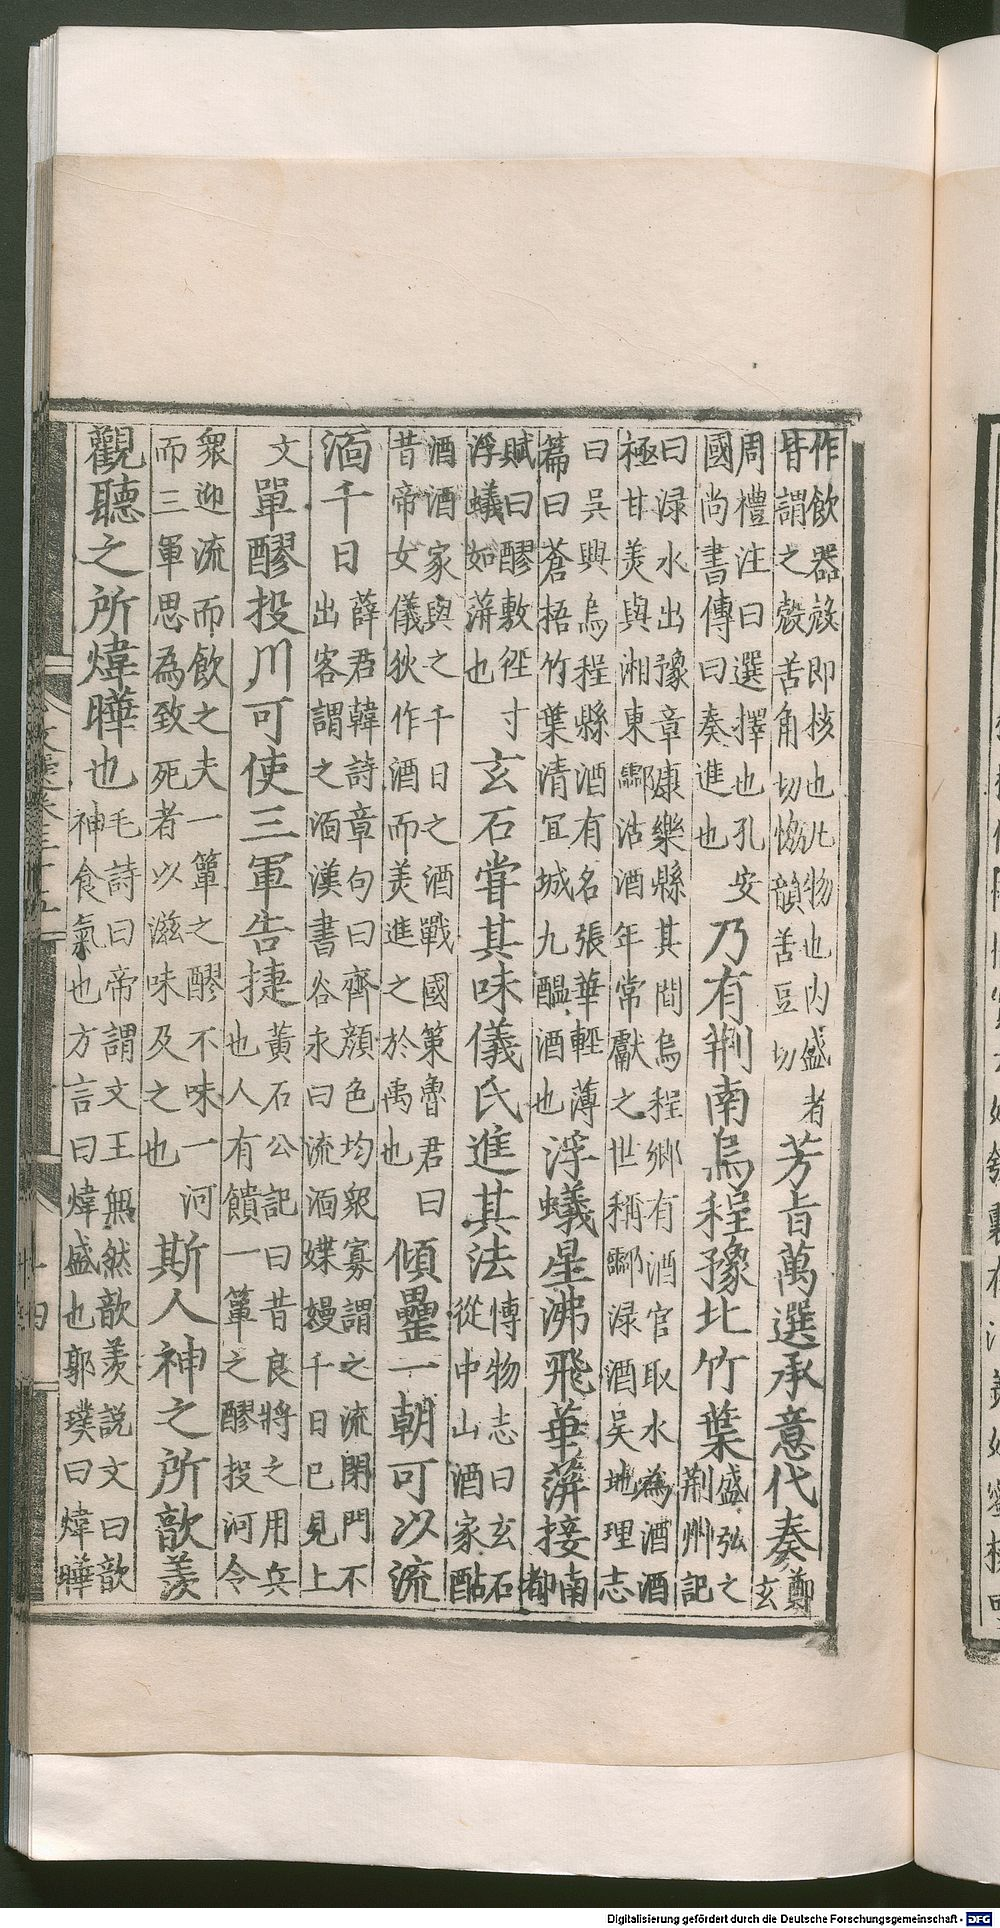 作飲器殽即核也凡物也内盛者
皆謂之殼苦角切愶韻苦豆切
芳旨萬選承意代奏
鄭
玄
周禮注曰選擇也孔安
國尚書傳曰奏進也
乃有荆南烏程豫北竹葉
盛弘之
荆州記
曰渌水出豫章康樂縣其間烏程鄉有酒官取水為酒酒
極甘美與湘東酃沽酒年常獻之世稱酃渌酒吳地理志
曰吳興烏程縣酒有名張華輕薄
篇曰蒼捂竹葉清冝城九醖酒也
浮蟻星沸飛華蓱接
南
都
賦曰醪敷徑寸
浮蟻如蓱也
玄石嘗其味儀氏進其法
博物志曰玄石
從中山酒家酤
酒酒家與之千日之酒戰國策魯君曰
昔帝女儀狄作酒而美進之於禹也
傾罍一朝可以流
湎千日
薛君韓詩章句曰齊顔色均衆寡謂之流閉門不
出客謂之湎漢書谷永曰流湎媟嫚千日已見上
文
單醪投川可使三軍告捷
黃石公記曰昔良將之用兵
也人有饋一簞之醪投河令
衆迎流而飲之夫一簞之醪不味一河
而三軍思為致死者以滋味及之也
斯人神之所歆羨
觀聽之所煒曄也
毛詩曰帝謂文王無然歆羡說文曰歆
神食氣也方言曰煒盛也郭璞曰煒曄
Digitalisierung gefördert durch die Deutsche Forschungsgemeinschaft - DFG